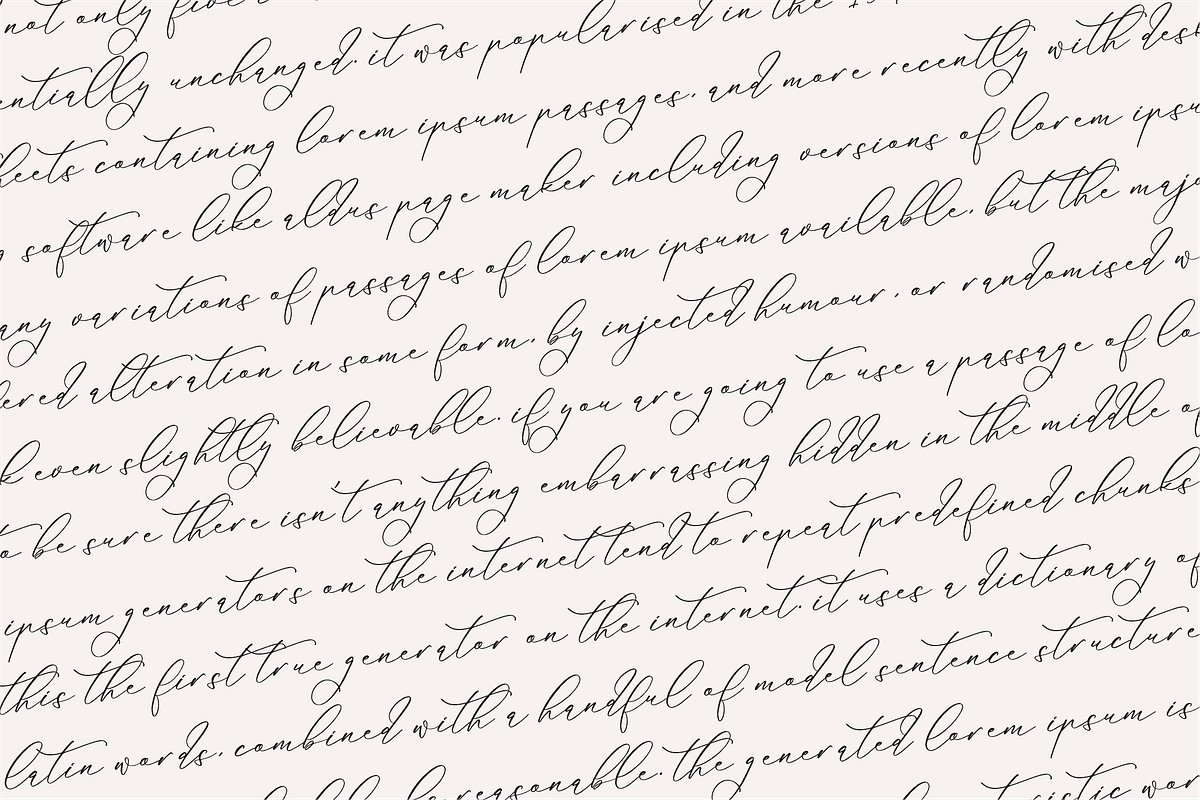 not only five
entially unchanged. it was popularised in the
heets containing lorem ipsum passages. and more recently with des
software like aldus page maker including versions of lorem ipsu
any variations of passages of lorem ipsum available. but the majo
ered alteration in some form. by injected humour. or randomised w
k even slightly believable. if you are going to use a passage of lo
to be sure there isn't anything embarrassing hidden in the middle of
ipsum generators on the internet tend to repeat predefined chunks
this the first true generator on the internet. it uses a dictionary of
latin words. combined with a handful of model sentence structure
reasonable. the generated lorem ipsum is
ristic wor